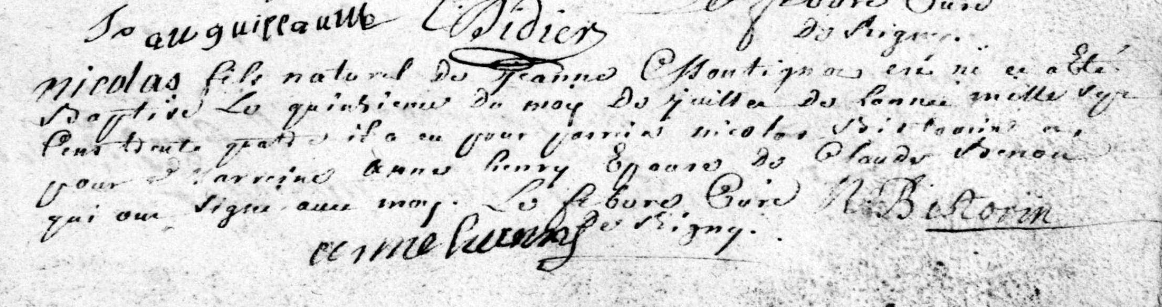 Le febvre Curé
Jean guillaume Didier de Rigny.
nicolas fils naturel de Jeanne Montignon est né et a Eté
Baptisé Le quinzieme du moy De Juillet de Lannee mille Sept
Cens trente quatre il a eu pour parrin nicolas Bistorin et
pour Marreine anne henry Epouse de Claude Renou
qui ont Signé avec moy. Le febvre Curé N. Bistorin
anne henry de Rigny.